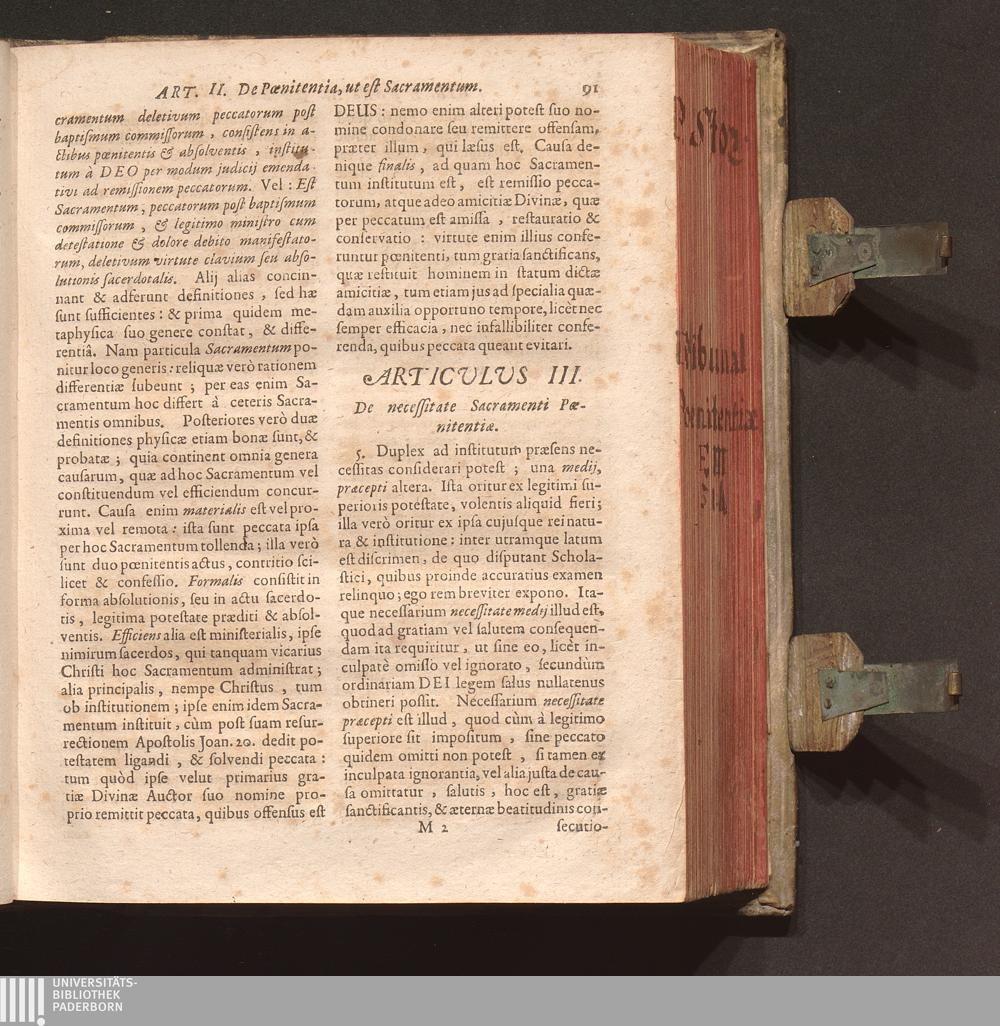 ART. II. De Pœnitentia, ut eſt Sacramentum. 91
cramentum deletivum peccatorum poſt
baptiſmum commiſſorum, conſiſtens in a-
ctibus pœnitentis & abſolventis, inſtitu-
tum à DEO per modum judicij emenda-
tivi ad remiſſionem peccatorum. Vel: Eſt
Sacramentum, peccatorum poſt baptiſmum
commiſſorum, & legitimo miniſtro cum
deteſtatione & dolore debito manifeſtato-
rum, deletivum virtute clavium ſeu abſo-
lutionis ſacerdotalis. Alij alias concin-
nant & adferunt definitiones, ſed hæ
ſunt ſufficientes: & prima quidem me-
taphyſica ſuo genere conſtat, & diffe-
rentiâ. Nam particula Sacramentum po-
nitur loco generis: reliquæ verò rationem
differentiæ ſubeunt; per eas enim Sa-
cramentum hoc differt à ceteris Sacra-
mentis omnibus. Poſteriores verò duæ
definitiones phyſicæ etiam bonæ ſunt, &
probatæ; quia continent omnia genera
cauſarum, quæ ad hoc Sacramentum vel
conſtituendum vel efficiendum concur-
runt. Cauſa enim materialis eſt vel pro-
xima vel remota: iſta ſunt peccata ipſa
per hoc Sacramentum tollenda; illa verò
ſunt duo pœnitentis actus, contritio ſci-
licet & confeſſio. Formalis conſiſtit in
forma abſolutionis, ſeu in actu ſacerdo-
tis, legitima poteſtate præditi & abſol-
ventis. Efficiens alia eſt miniſterialis, ipſe
nimirum ſacerdos, qui tanquam vicarius
Chriſti hoc Sacramentum adminiſtrat;
alia principalis, nempe Chriſtus, tum
ob inſtitutionem; ipſe enim idem Sacra-
mentum inſtituit, cùm poſt ſuam reſur-
rectionem Apoſtolis Joan. 20. dedit po-
teſtatem ligandi, & ſolvendi peccata:
tum quòd ipſe velut primarius gra-
tiæ Divinæ Auctor ſuo nomine pro-
prio remittit peccata, quibus offenſus eſt
DEUS: nemo enim alteri poteſt ſuo no-
mine condonare ſeu remittere offenſam,
præter illum, qui læſus eſt. Cauſa de-
nique finalis, ad quam hoc Sacramen-
tum inſtitutum eſt, eſt remiſſio pecca-
torum, atque adeo amicitiæ Divinæ, quæ
per peccatum eſt amiſſa, reſtauratio &
conſervatio: virtute enim illius confe-
runtur pœnitenti, tum gratia ſanctificans,
quæ reſtituit hominem in ſtatum dictæ
amicitiæ, tum etiam jus ad ſpecialia quæ-
dam auxilia opportuno tempore, licèt nec
ſemper efficacia, nec infallibiliter confe-
renda, quibus peccata queant evitari.
ARTICVLVS III.
De neceſſitate Sacramenti Pœ-
nitentiæ.
5. Duplex ad inſtitutum præſens ne-
ceſſitas conſiderari poteſt; una medij,
præcepti altera. Iſta oritur ex legitimi ſu-
perioris poteſtate, volentis aliquid fieri;
illa verò oritur ex ipſa cujuſque rei natu-
ra & inſtitutione: inter utramque latum
eſt diſcrimen, de quo diſputant Schola-
ſtici, quibus proinde accuratius examen
relinquo; ego rem breviter expono. Ita-
que neceſſarium neceſſitate medij illud eſt,
quod ad gratiam vel ſalutem conſequen-
dam ita requiritur, ut ſine eo, licèt in-
culpatè omiſſo vel ignorato, ſecundùm
ordinariam DEI legem ſalus nullatenus
obtineri poſſit. Neceſſarium neceſſitate
præcepti eſt illud, quod cùm à legitimo
ſuperiore ſit impoſitum, ſine peccato
quidem omitti non poteſt, ſi tamen ex
inculpata ignorantia, vel alia juſta de cau-
ſa omittatur, ſalutis, hoc eſt, gratiæ
ſanctificantis, & æternæ beatitudinis con-
M 2 ſecutio-
Tribunal
Poenitentiæ
UNIVERSITÄTS-
BIBLIOTHEK
PADERBORN